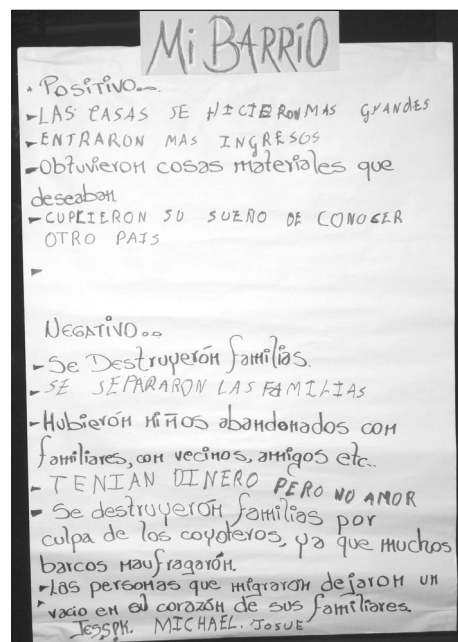 Mi BARRiO
• POSiTiVO...
- LAS CASAS SE HICIERON MAS GRANDES
- ENTRARON MAS INGRESOS
- Obtuvieron cosas materiales que
deseaban
- CUPLIERON SU SUEÑO DE CONOCER
OTRO PAIS
-
NEGATIVO...
- Se Destruyerón familias.
- SE SEPARARON LAS FAMILIAS
- Hubierón niños abandonados con
familiares, con vecinos, amigos etc..
- TENIAN DINERO PERO NO AMOR
- Se destruyerón familias por
culpa de los coyoteros, ya que muchos
barcos naufragarón.
- Las personas que migrarón dejarón un
vacio en el corazón de sus familiares.
MICHAEL. JOSUE